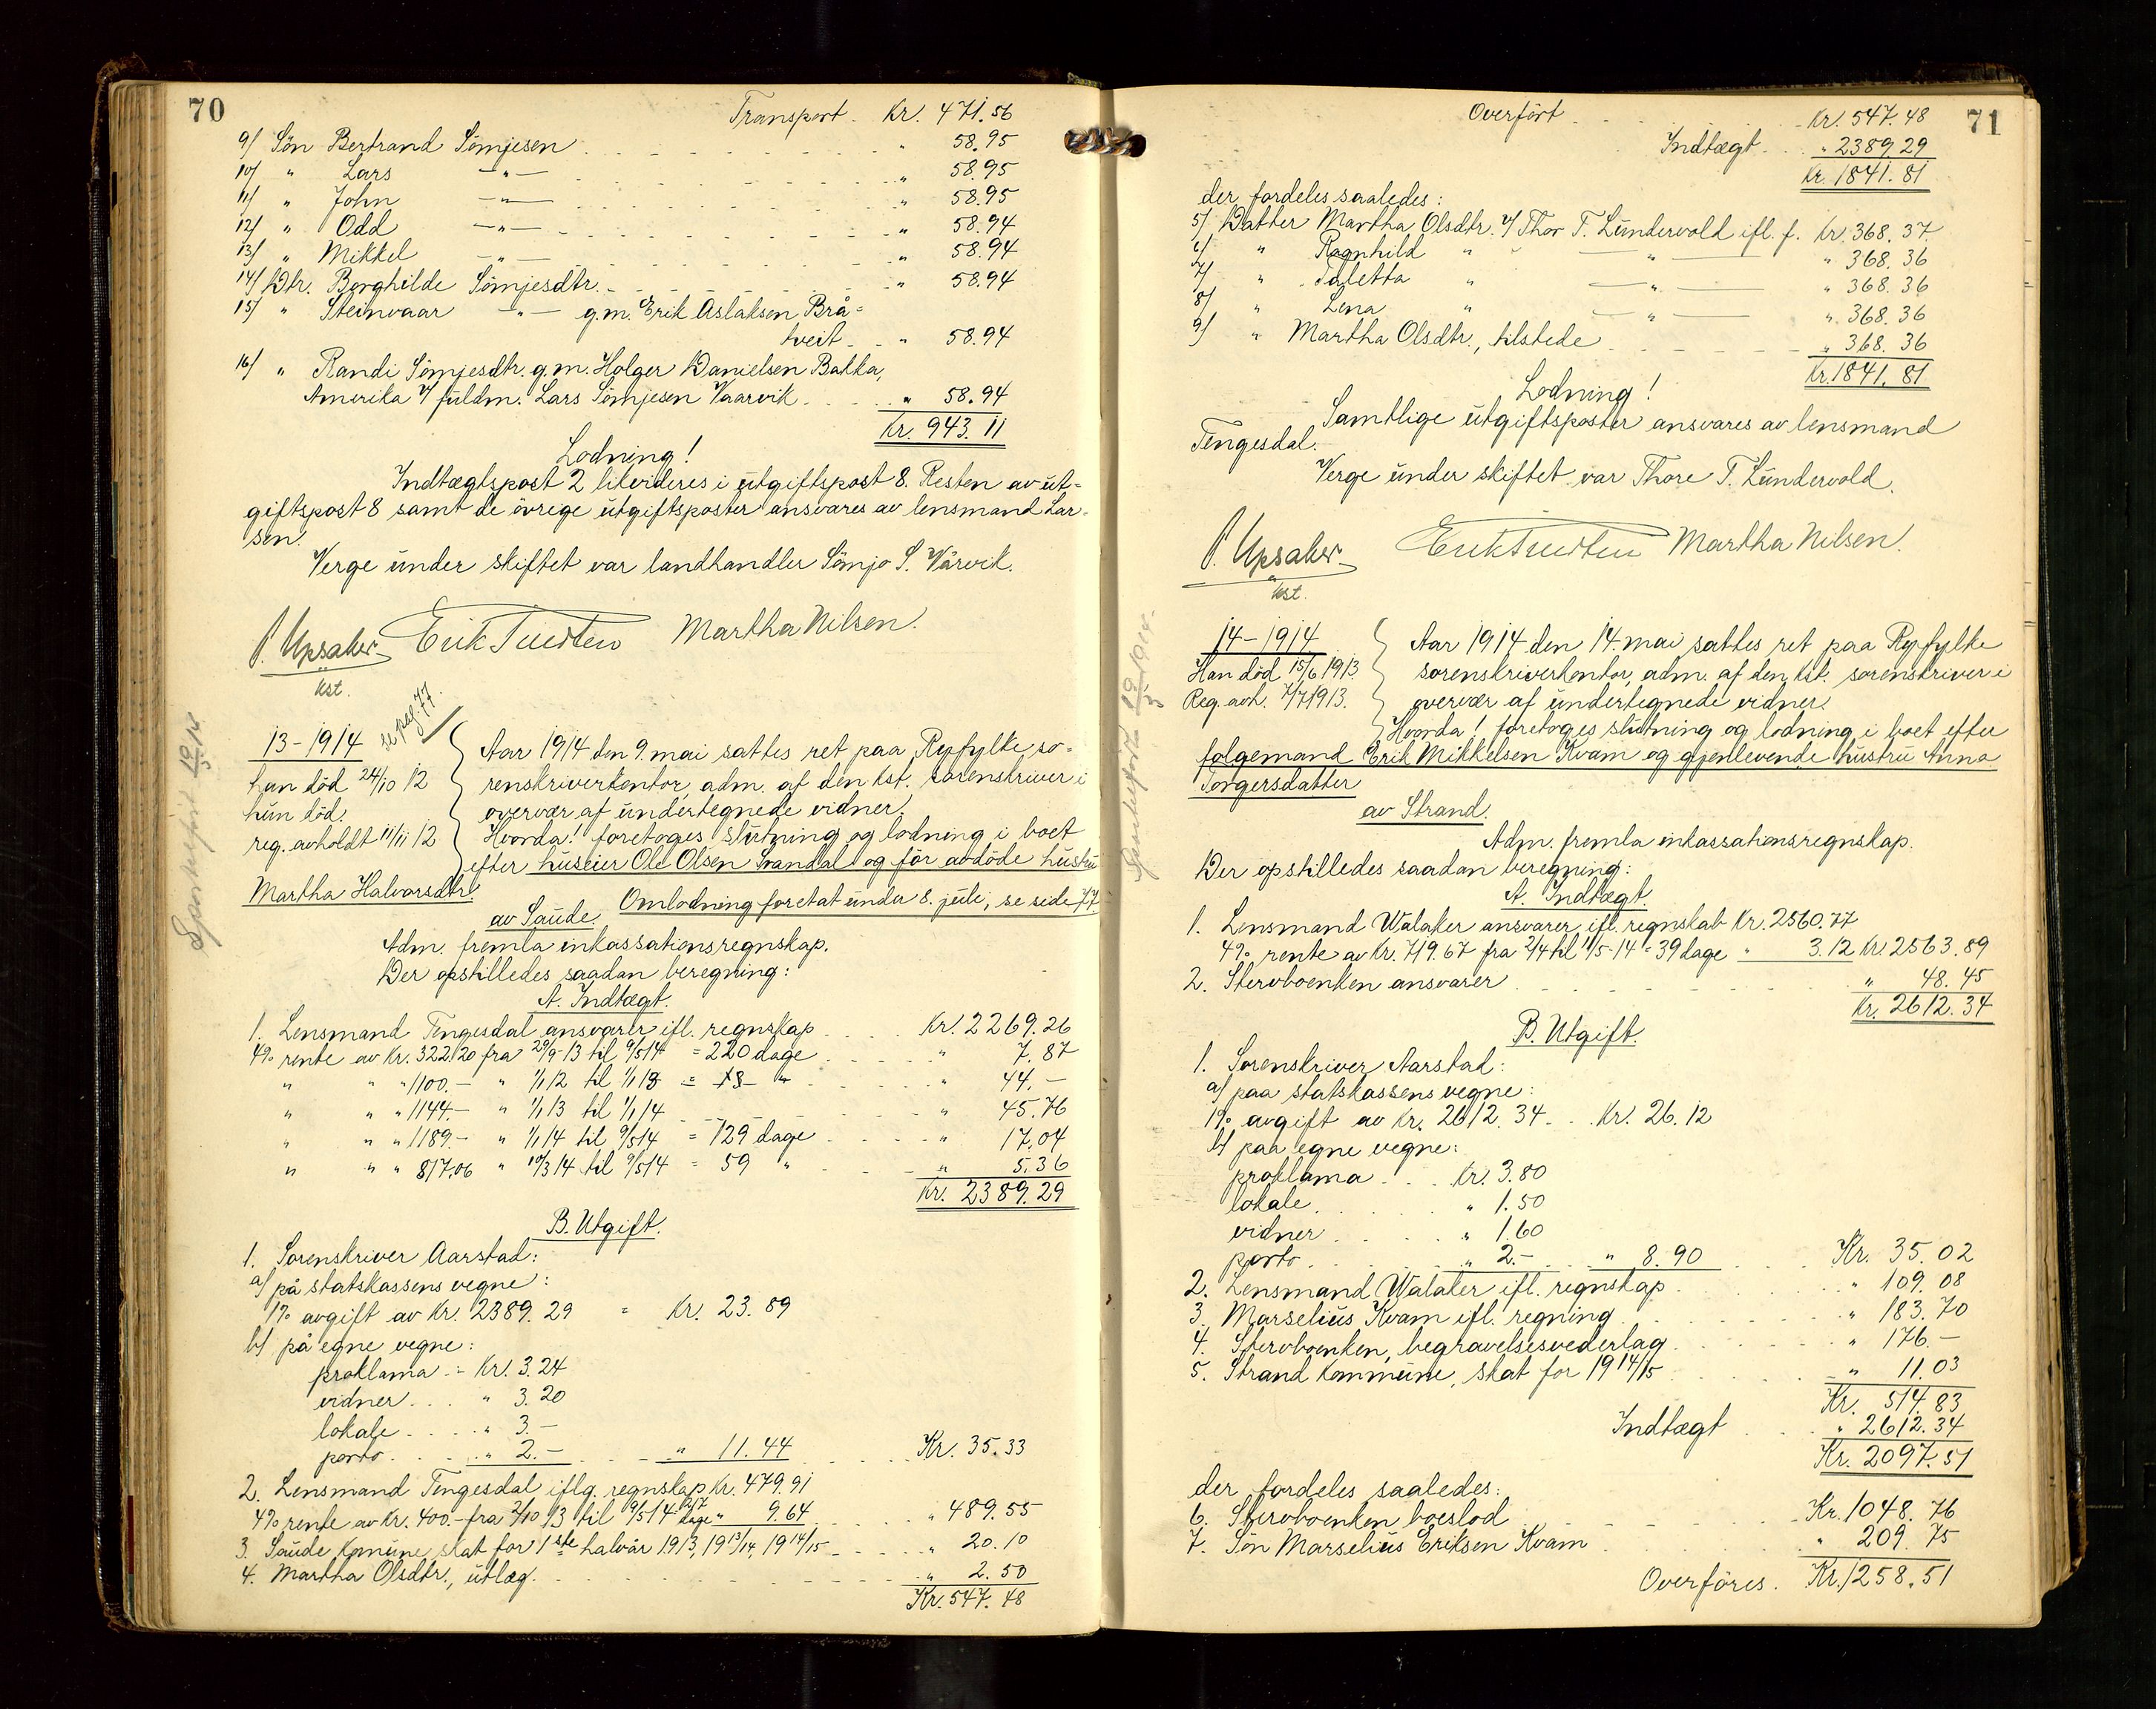 70
Transport Kr. 471.56
9/ Sön Bertrand Sömjesen " 58.95
10/ " Lars —"— " 58.95
11/ " John —"— " 58.95
12/ " Odd —"— " 58.94
13/ " Mikkel —"— " 58.94
14/ Dtr. Borghilde Sömjesdtr. " 58.94
15/ " Steinvaar —"— g.m. Erik Aslaksen Brå=
tveit " 58.94
16/ " Randi Sömjesdtr. g.m. Holger Danielsen Bakka,
Amerika v/ fuldm. Lars Sömjesen Vaarvik " 58.94
Kr. 943.11
Lodning!
Indtægtspost 2 likvideres i utgiftspost 8. Resten av ut=
giftspost 8 samt de övrige utgiftsposter ansvares av lensmand Lar=
sen.
Verge under skiftet var landhandler Sömjo S. Vårvik.
P. Upsaker Erik Tuesten Martha Nilsen.
kst.
se pag. 77.
13-1914
han död 24/10 12
hun död.
reg. avholdt 11/11 12
Aar 1914 den 9. mai sattes ret paa Ryfylke so=
renskriverkontor, adm. af den kst. sorenskriver i
overvær af undertegnede vidner.
Hvorda! foretoges slutning og lodning i boet
efter huseier Ole Olsen Svandal og för avdöde hustru
Martha Halvorsdtr.
Omlodning foretat under 8. juli, se side 77.
av Saude.
Adm. fremla inkassationsregnskap.
Der opstilledes saadan beregning:
A. Indtægt.
1. Lensmand Tengesdal ansvarer ifl. regnskap Kr. 2269.26
4% rente av Kr. 322.20 fra 29/9-13 til 9/5 14 = 220 dage " 7.87
" " " 1100.- " 1/1 12 til 1/1 13 " 44.-
" " " 1144.- " 1/1 13 til 1/1 14 " 45.76
" " " 1189.- " 1/1 14 til 9/5 14 = 129 dage " 17.04
" " " 817.06 " 10/3 14 til 9/5 14 = 59 " " 5.36
Kr. 2389.29
B. Utgift.
1. Sorenskriver Aarstad:
a/ på statskassens vegne:
1% avgift av Kr. 2389.29 = Kr. 23.89
b/ på egne vegne:
proklama Kr. 3.24
vidner " 3.20
lokale " 3.-
porto " 2.- " 11.44 Kr. 35.33
2. Lensmand Tengesdal iflg. regnskap Kr. 479.91
4% rente av Kr. 400.- fra 2/10 13 til 9/5 14 217 dage " 9.64 " 489.55
3. Saude komune skat for 1ste halvår 1913, 1913/14, 1914/15 " 20.10
4. Martha Olsdtr., utlæg " 2.50
Kr. 547.48
71
Overfört Kr. 547.48
Indtægt " 2389.29
Kr. 1841.81
der fordeles saaledes:
5/ Datter Martha Olsdtr. v/ Thor T. Lundervold ifl. f. Kr. 368.37
6/ " Ragnhild " —"— " 368.36
7/ " Taletta " —"— " 368.36
8/ " Lena " —"— " 368.36
9/ " Martha Olsdtr., tilstede " 368.36
Kr. 1841.81
Lodning!
Samtlige utgiftsposter ansvares av lensmand
Tengesdal.
Verge under skiftet var Thore T. Lundervold.
P. Upsaker Erik Tuesten Martha Nilsen.
kst.
14-1914.
Han död 15/6 1913.
Reg. avh. 7/7 1913.
Aar 1914 den 14. mai sattes ret paa Ryfylke
sorenskriverkontor, adm. af den kst. sorenskriver i
overvær af undertegnede vidner.
Hvorda! foretoges slutning og lodning i boet efter
folgemand Erik Mikkelsen Kvam og gjenlevende hustru Anna
Torgersdatter
av Strand.
Adm. fremla inkassationsregnskap.
Der opstilledes saadan beregning:
A. Indtægt.
1. Lensmand Walaker ansvarer ifl. regnskab Kr. 2560.77
4% rente av Kr. 719.67 fra 2/4 til 11/5-14 = 39 dage " 3.12 Kr. 2563.89
2. Stervboenken ansvarer " 48.45
Kr. 2612.34
B. Utgift.
1. Sorenskriver Aarstad:
a/ paa statskassens vegne:
1% avgift av Kr. 2612.34 Kr. 26.12
b/ paa egne vegne:
proklama Kr. 3.80
lokale " 1.50
vidner " 1.60
porto " 2.- " 8.90 Kr. 35.02
2. Lensmand Walaker ifl. regnskap " 109.08
3. Marselius Kvam ifl. regning " 183.70
4. Stervboenken, begravelsesvederlag " 176.-
5. Strand kommune, skat for 1914/15 " 11.03
Kr. 514.83
Indtægt " 2612.34
Kr. 2097.51
der fordeles saaledes:
6. Stervboenken boeslod Kr. 1048.76
7. Sön Marselius Eriksen Kvam " 209.75
Overföres. Kr. 1258.51